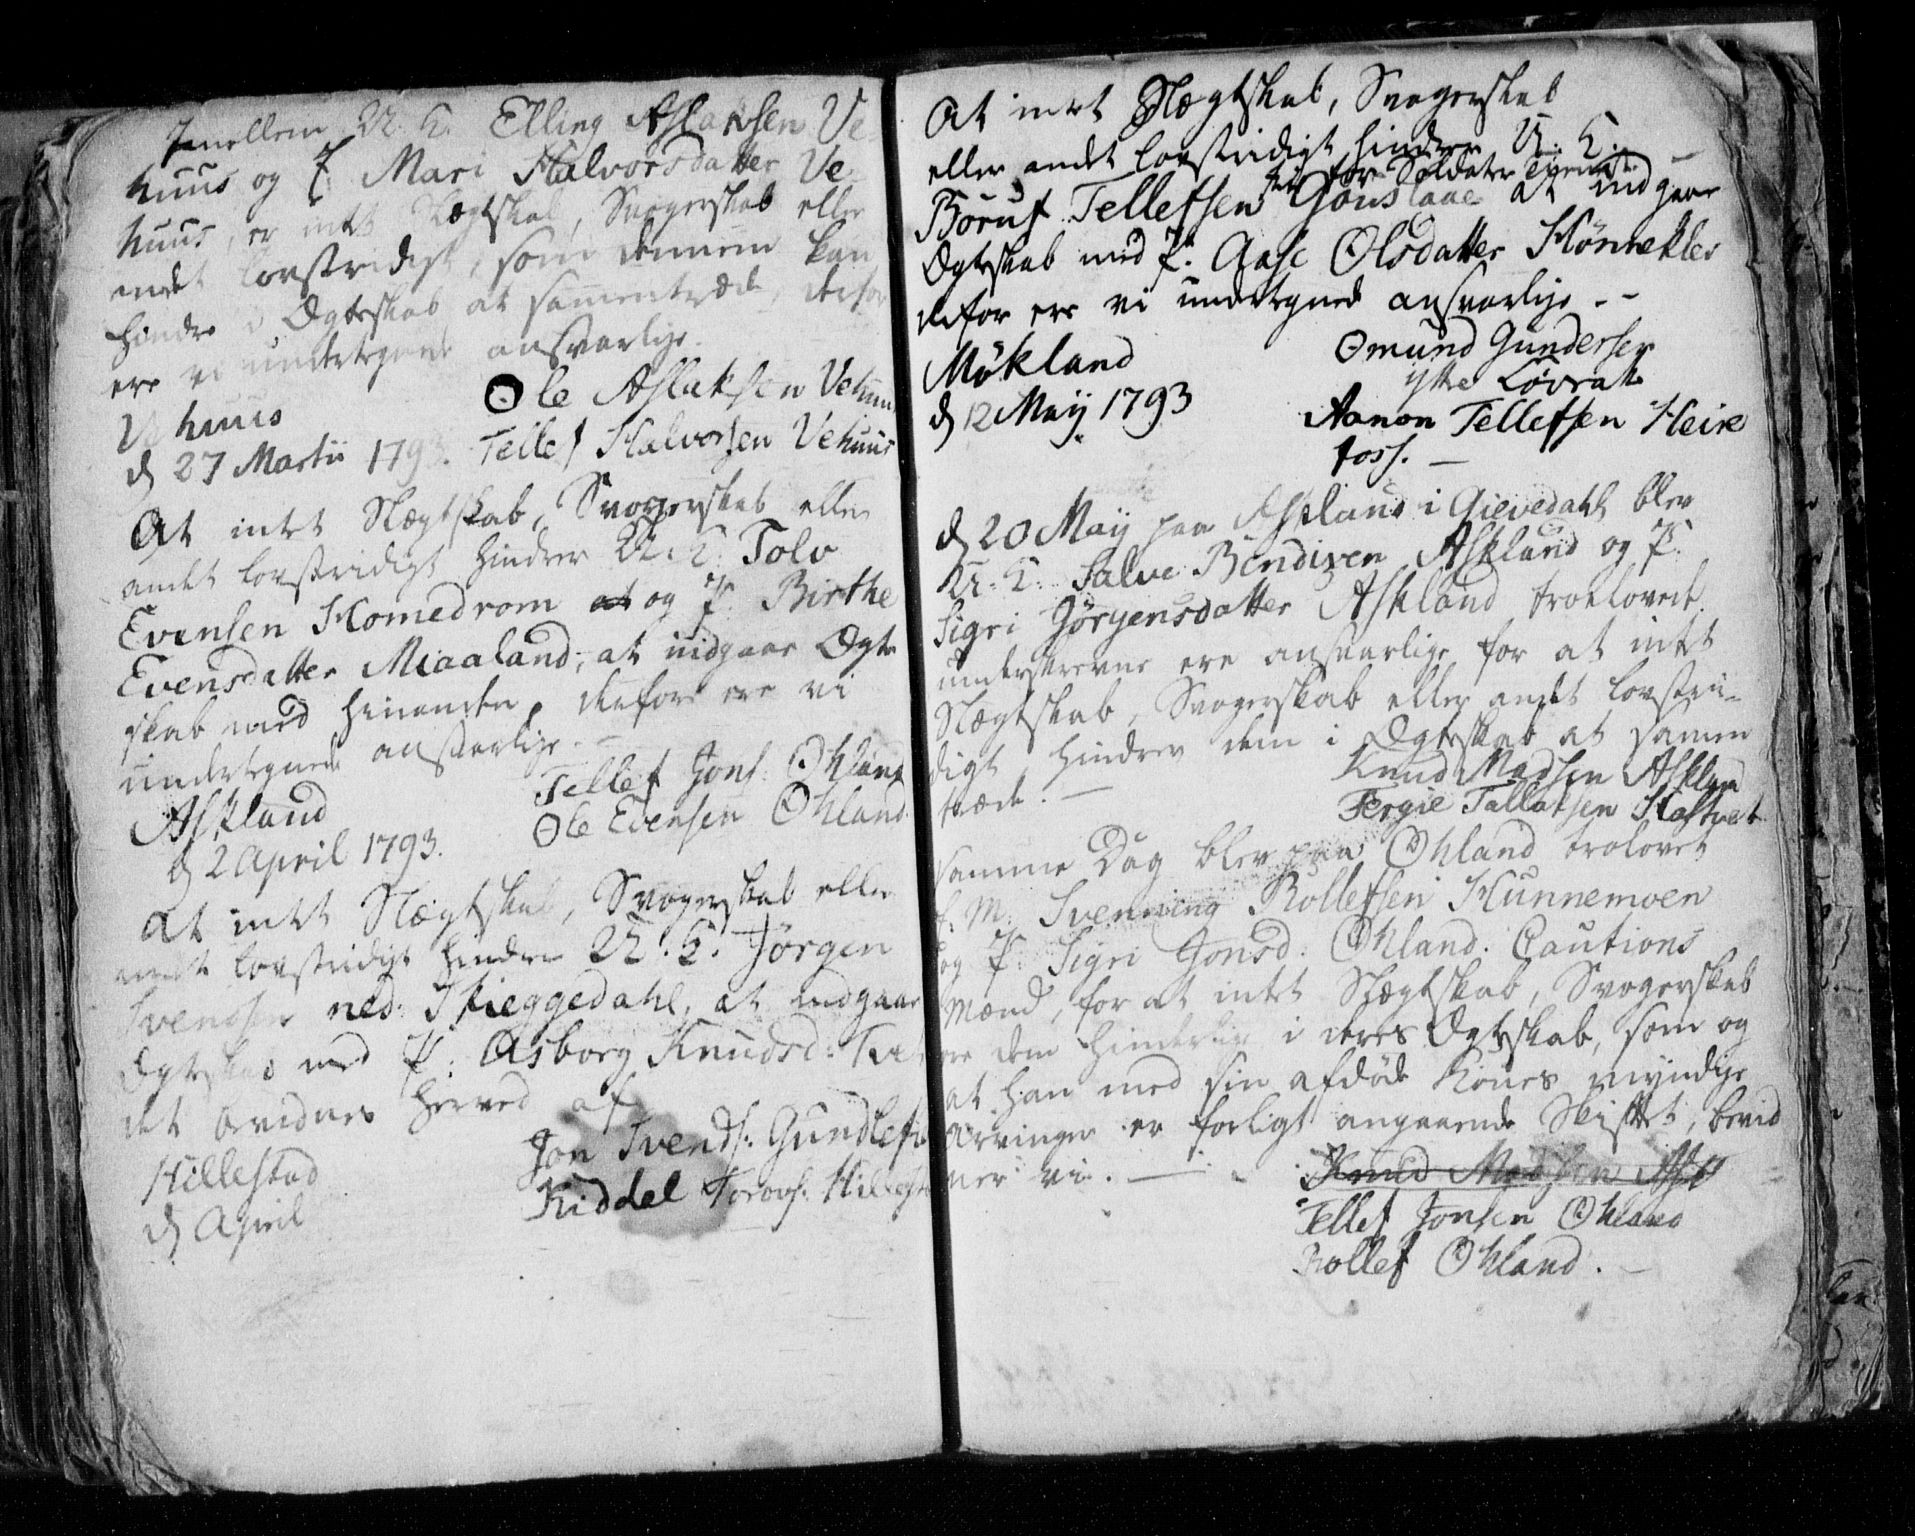 Imellem U. K. Elling Aslaksen Ve-
huus og P. Mari Halvorsdatter Ve-
huus, er intet Slægtskab, Svogerskab eller
andet lovstridigt, som dennem kan
hindre i Ægteskab at sammentræde, derfor
ere vi undertegnede ansvarlige.
Vehuus
d 27 Martii 1793.
Ole Aslaksen Vehuus
Tellef Halvorsen Vehuus
At intet Slægtskab, Svogerskab eller
andet lovstridigt hindrer U. K. Tolv
Evensen Homedrom og P. Birthe
Evensdatter Miaaland, at indgaae Ægte
skab med hinanden, derfor ere vi
undertegnede ansvarlige. -
Askland
d 2 April 1793.
Tellef Jons. Ohland
Ole Evensen Ohland
At intet Slægtskab, Svogerskab eller
andet lovstridigt hindrer U. K. Jørgen
Svendsen ned. Skieggedahl, at indgaae
Ægteskab med P. Asborg Knudsd.
det bevidnes herved af
Hillestad
d April
Jon Svends. Gundlefs
Kiddel Torovs. Hillest
At intet Slægtskab, Svogerskab
eller andet lovstridigt hindrer U. K. -
fri for Soldater Tieneste
Børuf Tellefsen Gouslaae at indgaae
Ægteskab med P. Aase Olsdatter Hønnekler
derfor ere vi undertegnede ansvarlige. - -
Møkland
d 12 Maij 1793
Omund Gundersen
ytte Løvrak
Aanon Tellefsen Heire
foss. -
d 20 Maij paa Askland i Gievedahl blev
U. K. Salve Bendixen Askland og P.
Sigri Jørgensdatter Askland trolovede.
underskrevne ere ansvarlige for at intet
Slægtskab, Svogerskab eller andet lovstri-
digt hindrer dem i Ægteskab at sammen
træde. -
Knud Madsen Askland
Tergie Tallaksen Hastvet
samme Dag blev paa Ohland trolovet
E. M. Svenning Rollefsen Hunnemoen
og P. Sigri Jonsd. Ohland. Cautions
Mænd, for at intet Slægtskab, Svogerskab
ere dem hinderlig i deres Ægteskab, som og
at han med sin afdøde Kones myndige
Arvinger er forligt angaaende Skiftet, bevid
ner vi. -
Knud Madsen Askl
Tellef Jonsen Ohland
Rollef Ohland. -